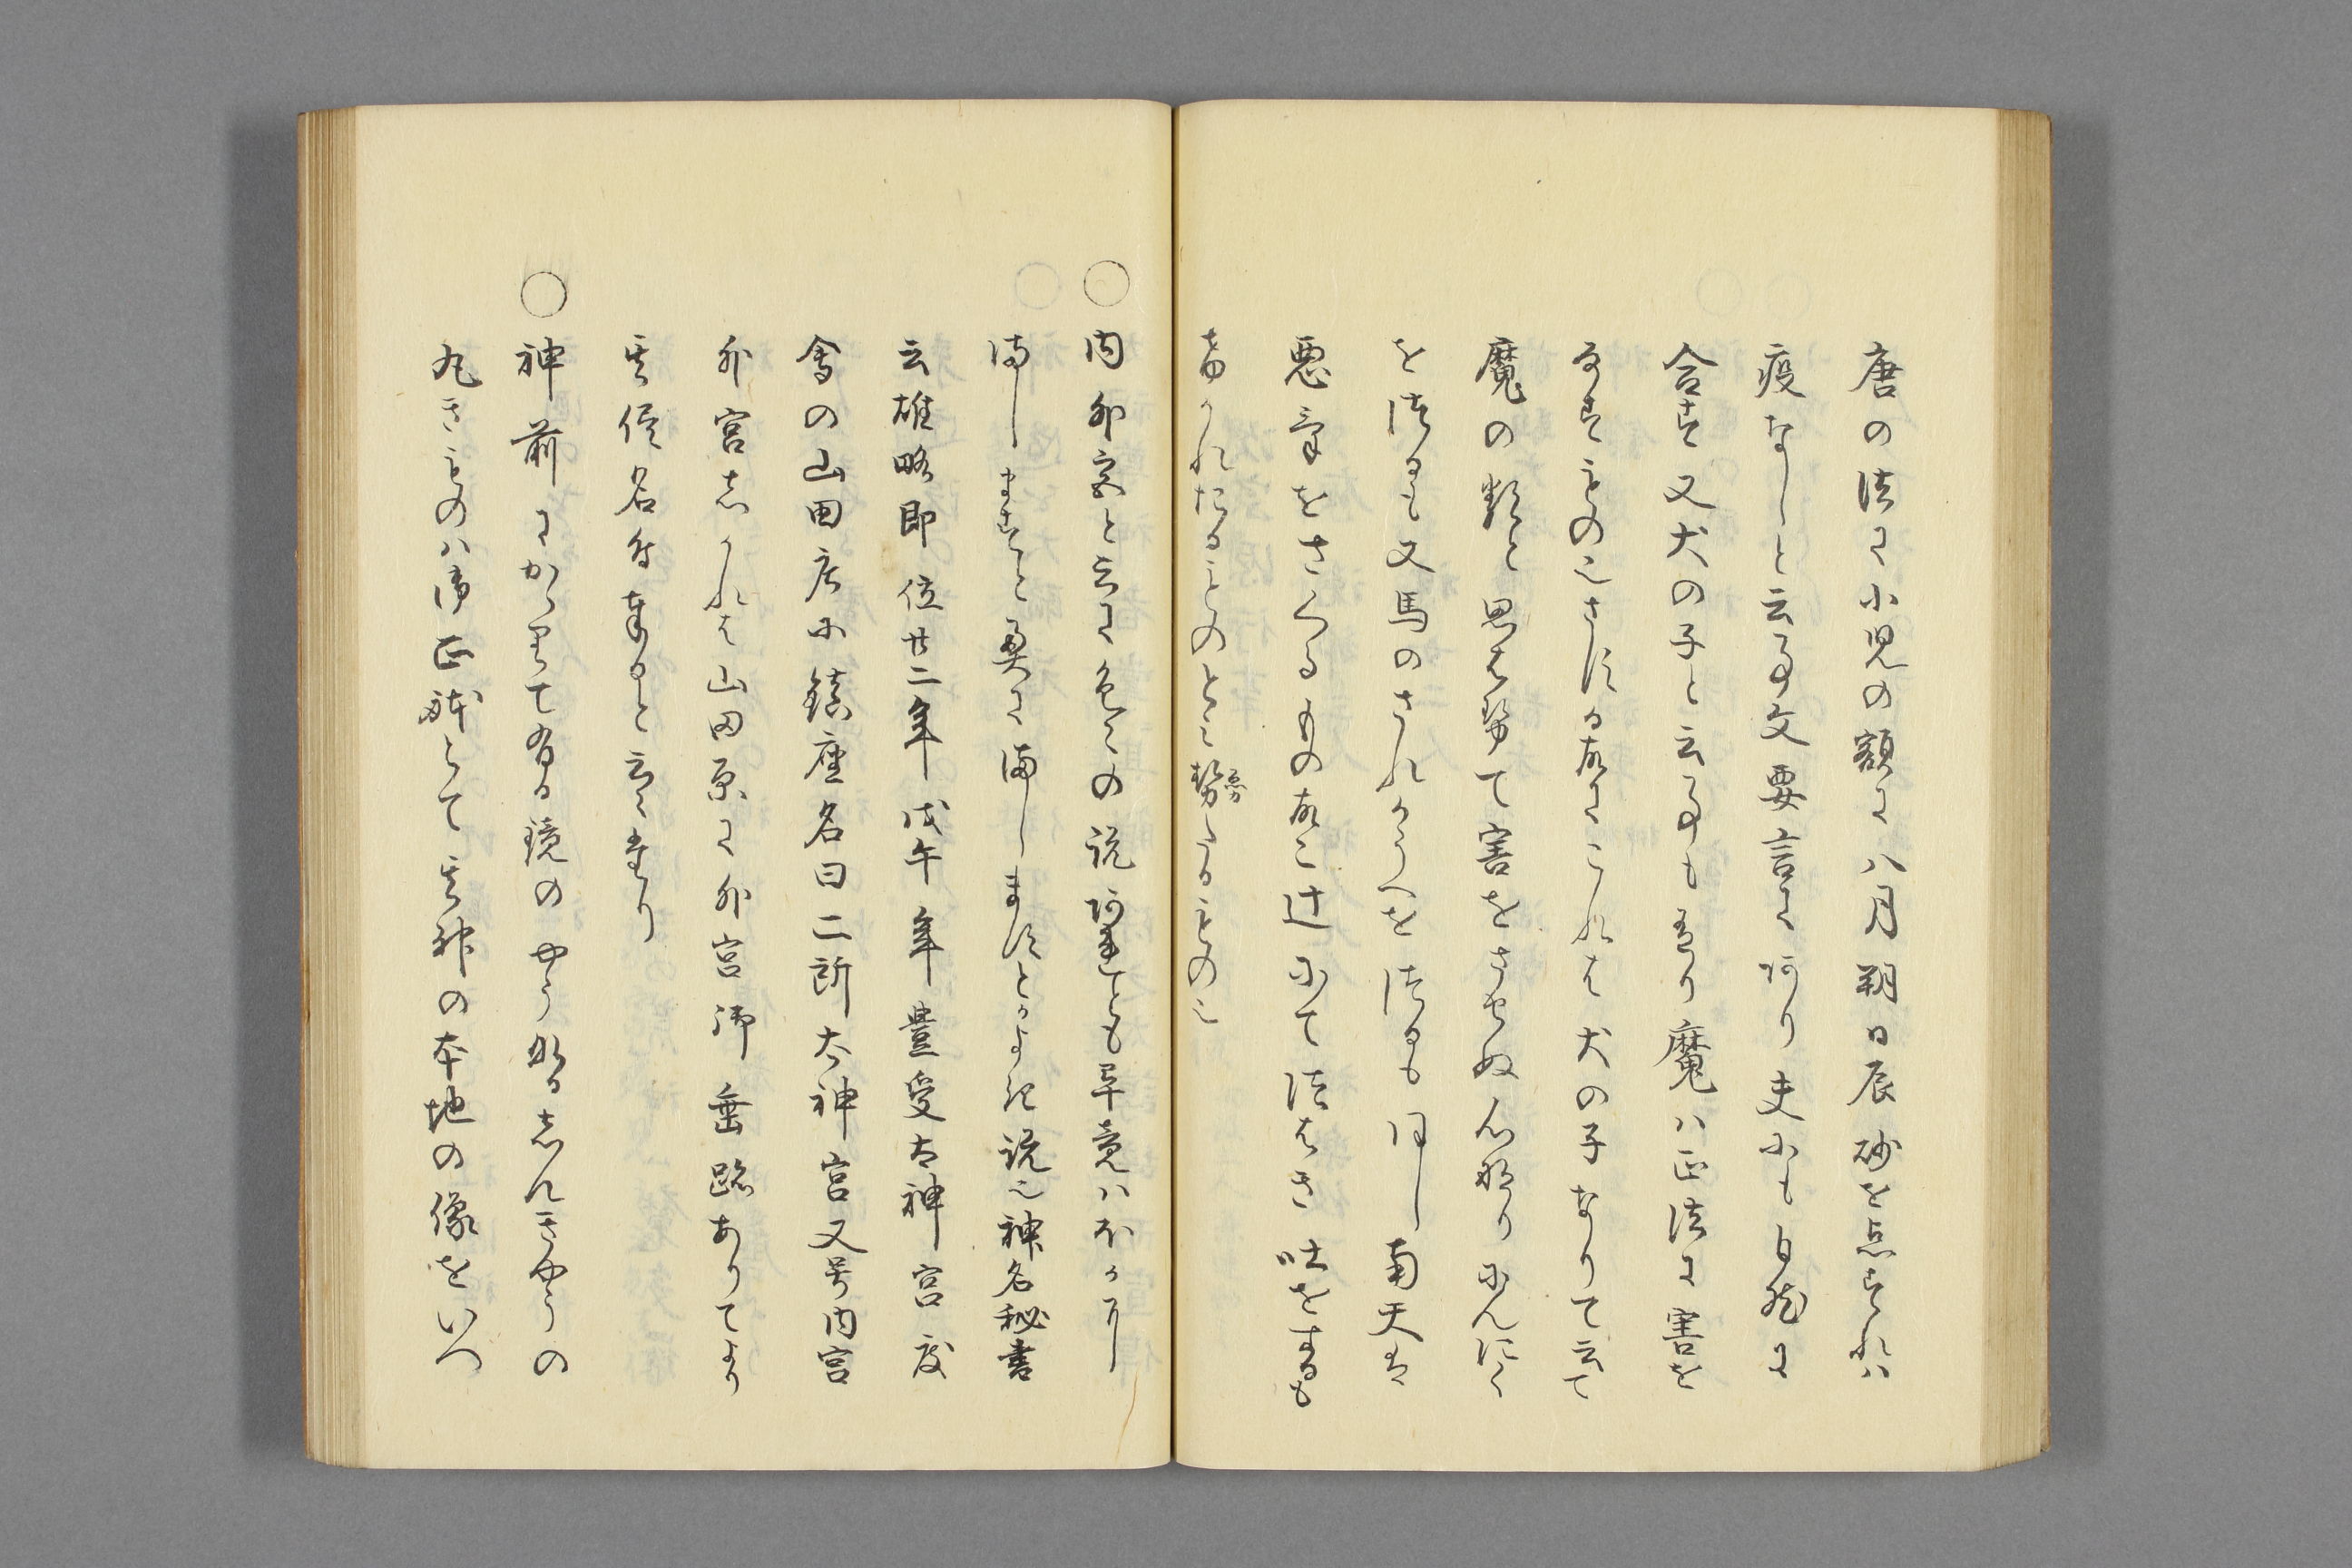 唐の法に小児の額に八月朔日辰砂を点すれハ
疫なしと云る文要言にあり夫にも自然に
合す又犬の子と云るも有り魔ハ正法に害を
なすもの也さする故にこれは犬の子なりて云て
魔の類と思はせて害をさせぬ心なりにんにく
を法るも又馬のされかうへを法るも同し南天は
悪気をさくるもの故に辻にて法はき吐をするも
きかれたるものとに勢るもの也
○内外宮と云に色々の説あれとも畢竟ハわかりし
ましますと奥にましますとかよき説也神名秘書
云雄略即位廿二年戊午年豊受太神宮度
会の山田原に鎮座名曰二所太神宮又号内宮
外宮しかれは山田原に外宮御垂跡ありてより
其後名付奉ると云々なり
○神前にかゝりて有る鏡のやうなるしんきやうの
丸きものハ御正躰とて其神の本地の像をいつ